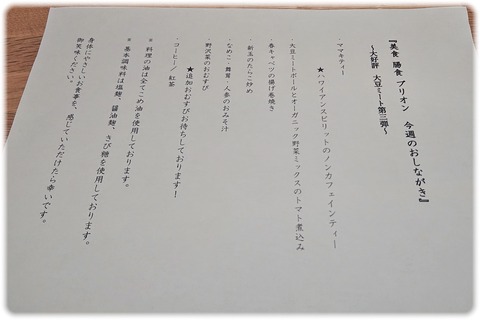 『美食 腸食 プリオン 今週のおしながき』
~大好評 大豆ミート第三弾~
・ママキティー
★ハワイアンスピリットのノンカフェインティー
大豆ミートボールとオーガニック野菜ミックスのトマト煮込み
・春キャベツの揚げ春巻き
新玉のたらこ炒め
・なめこ・舞茸・人参のおみそ汁
・野沢菜のおむすび
★追加おむすびお待ちしております!
・コーヒー/紅茶
※ 料理の油は全てこめ油を使用しております。
※ 基本調味料は塩麹、醤油麹、きび糖を使用しております。
身体にやさしいお食事を、感じていただけたら幸いです。
御笑味ください。